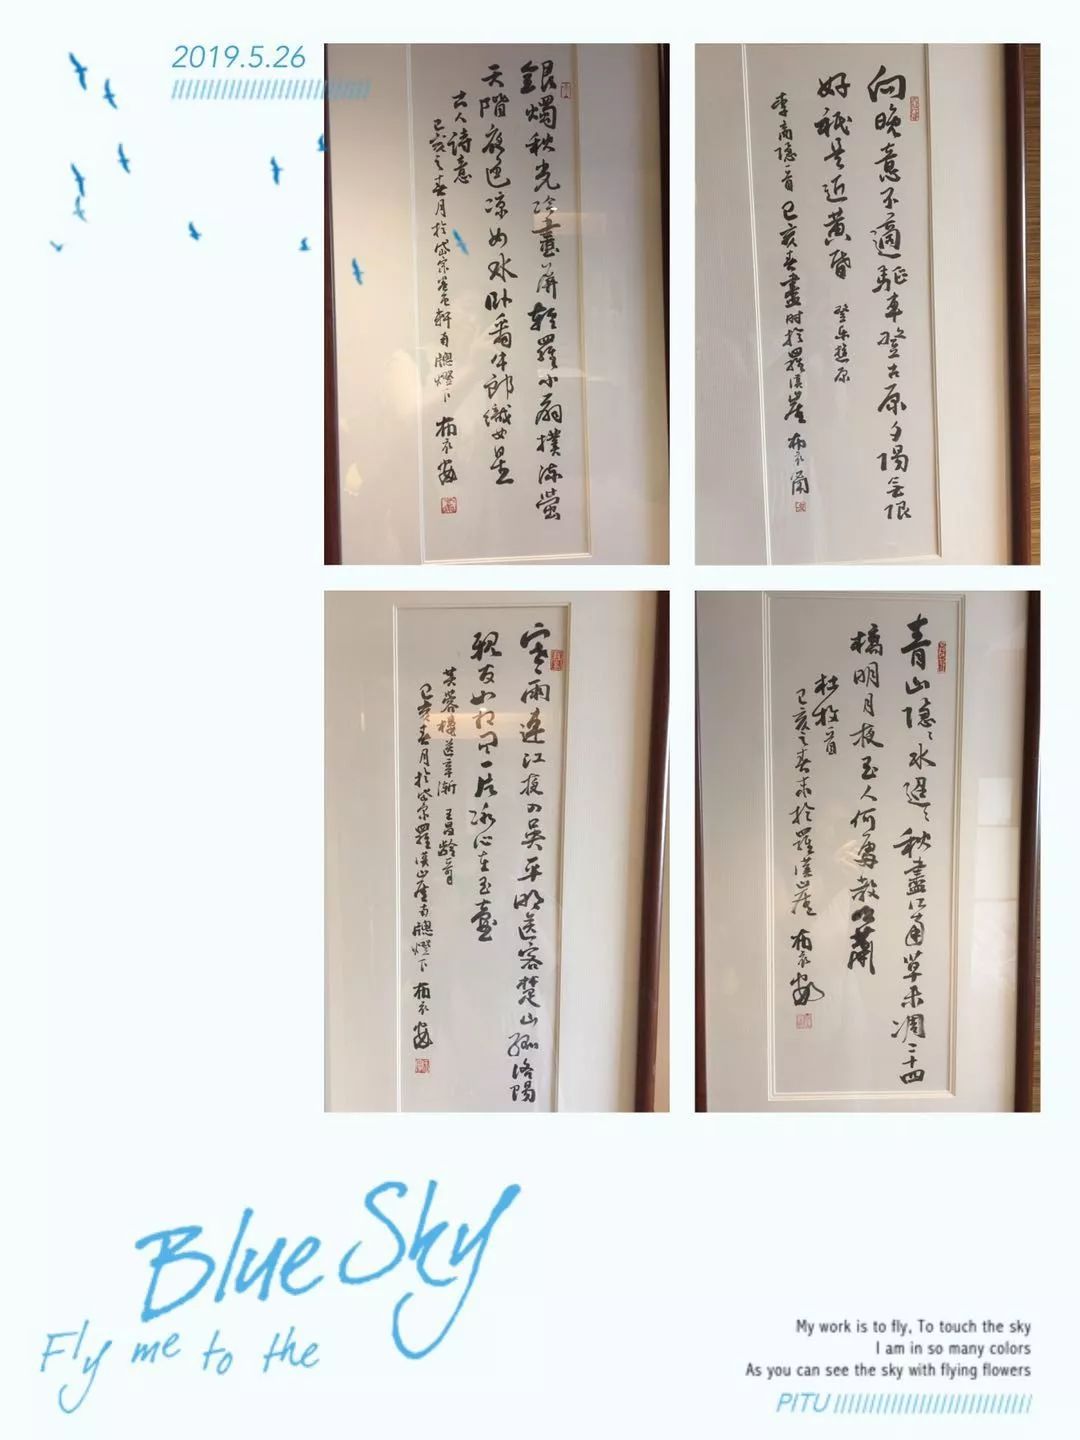 2019.5.26
銀燭秋光冷畫屏輕羅小扇撲流螢
天階夜色涼如水臥看牛郎織女星
古人詩意
己亥之春月於岱宗
軒南牕燈下 布衣
向晚意不適驅車登古原夕陽無限
好祇是近黃昏 登樂遊原
李商隱一首 己亥春盡時於羅漢崖 布衣
寒雨連江夜入吳平明送客楚山孤洛陽
親友如相問一片冰心在玉壺
芙蓉樓送辛漸 王昌齡一首
己亥春月於岱宗羅漢崖南牕燈下 布衣
青山隱隱水迢迢秋盡江南草未凋二十四
橋明月夜玉人何處教吹簫
杜牧一首
己亥之春末於羅漢崖 布衣
Blue Sky
Fly me to the
My work is to fly, To touch the sky
I am in so many colors
As you can see the sky with flying flowers
PITU